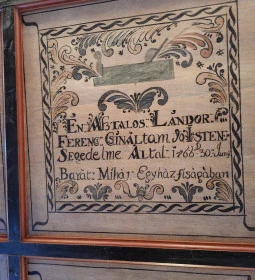 ÉN ASZTALOS: LÁNDOR:
FERENC: CSINÁLTAM: JÓ ISTEN:
SEGEDELME ÁLTAL: 1766 D: 30: Junÿ
Barát: Mihár: Egyház fiságában